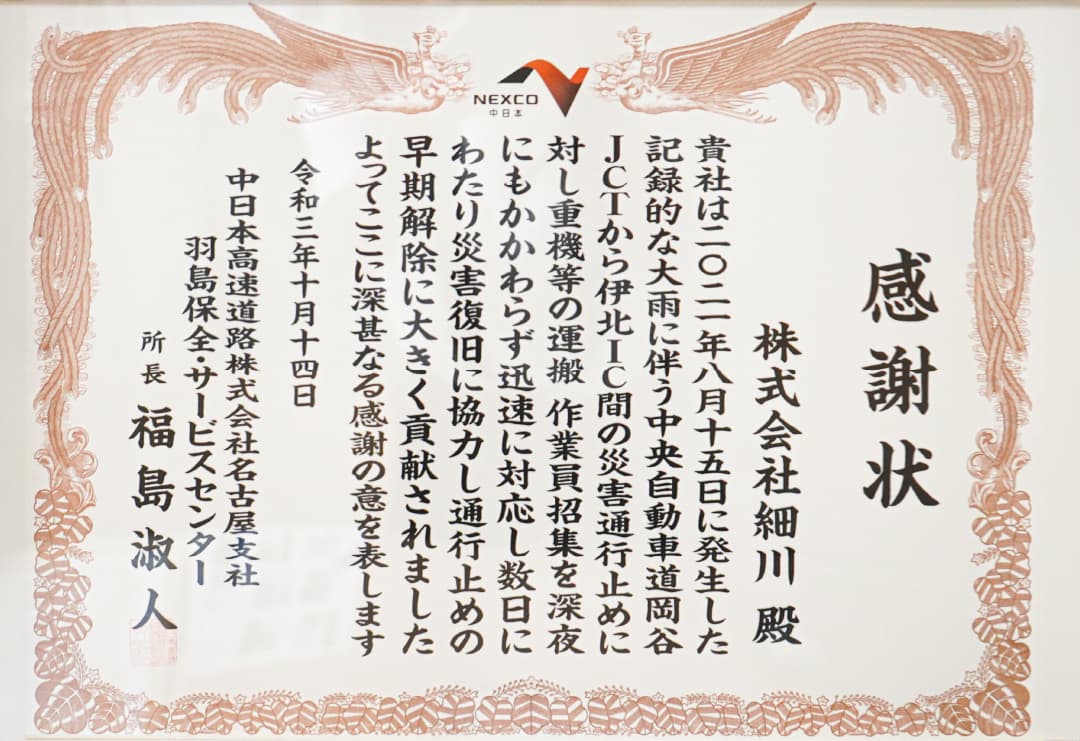 NEXCO
中日本
感謝状
株式会社細川 殿
貴社は二〇二一年八月十五日に発生した
記録的な大雨に伴う中央自動車道岡谷
JCTから伊北IC間の災害通行止めに
対し重機等の運搬 作業員招集を深夜
にもかかわらず迅速に対応し数日に
わたり災害復旧に協力し通行止めの
早期解除に大きく貢献されました
よってここに深甚なる感謝の意を表します
令和三年十月十四日
中日本高速道路株式会社名古屋支社
羽島保全・サービスセンター
所長 福島淑人